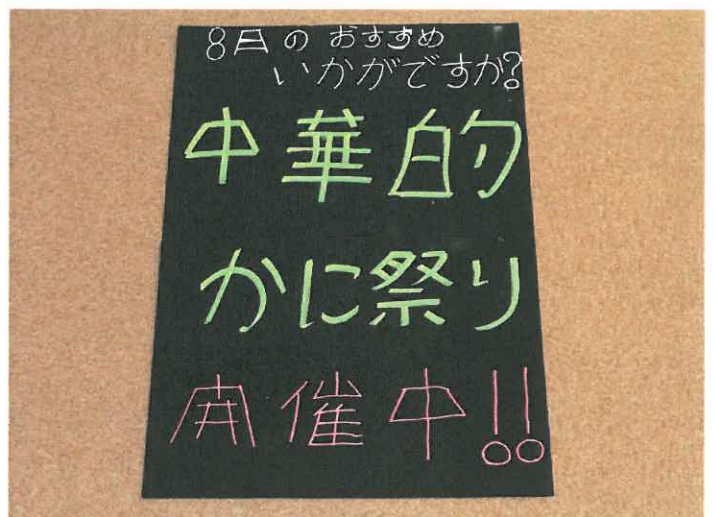 8月のおすすめ
いかがですか?
中華的
かに祭り
開催中!!